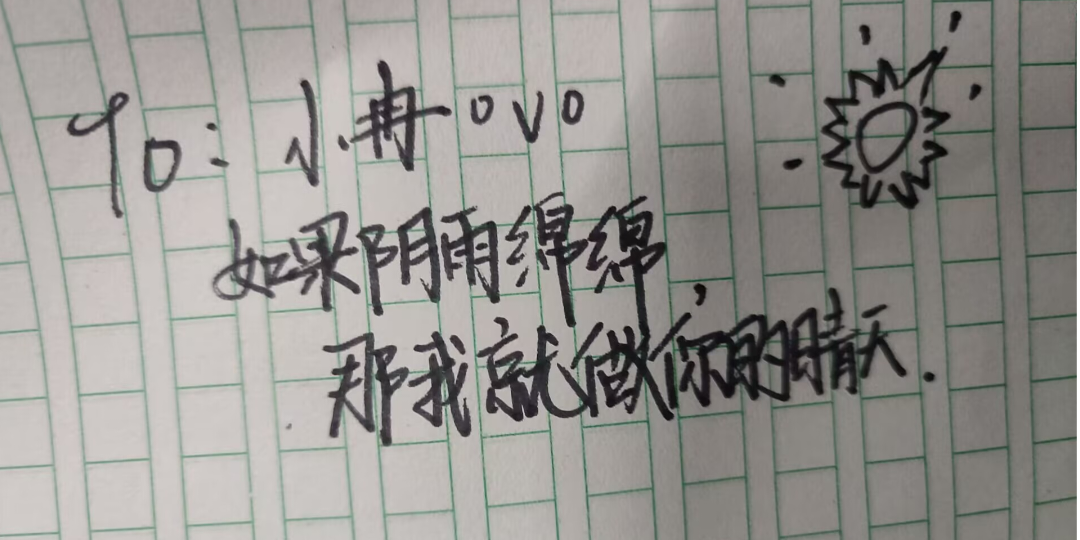 To: 小冉 OVO
如果阴雨绵绵,
那我就做你的晴天.